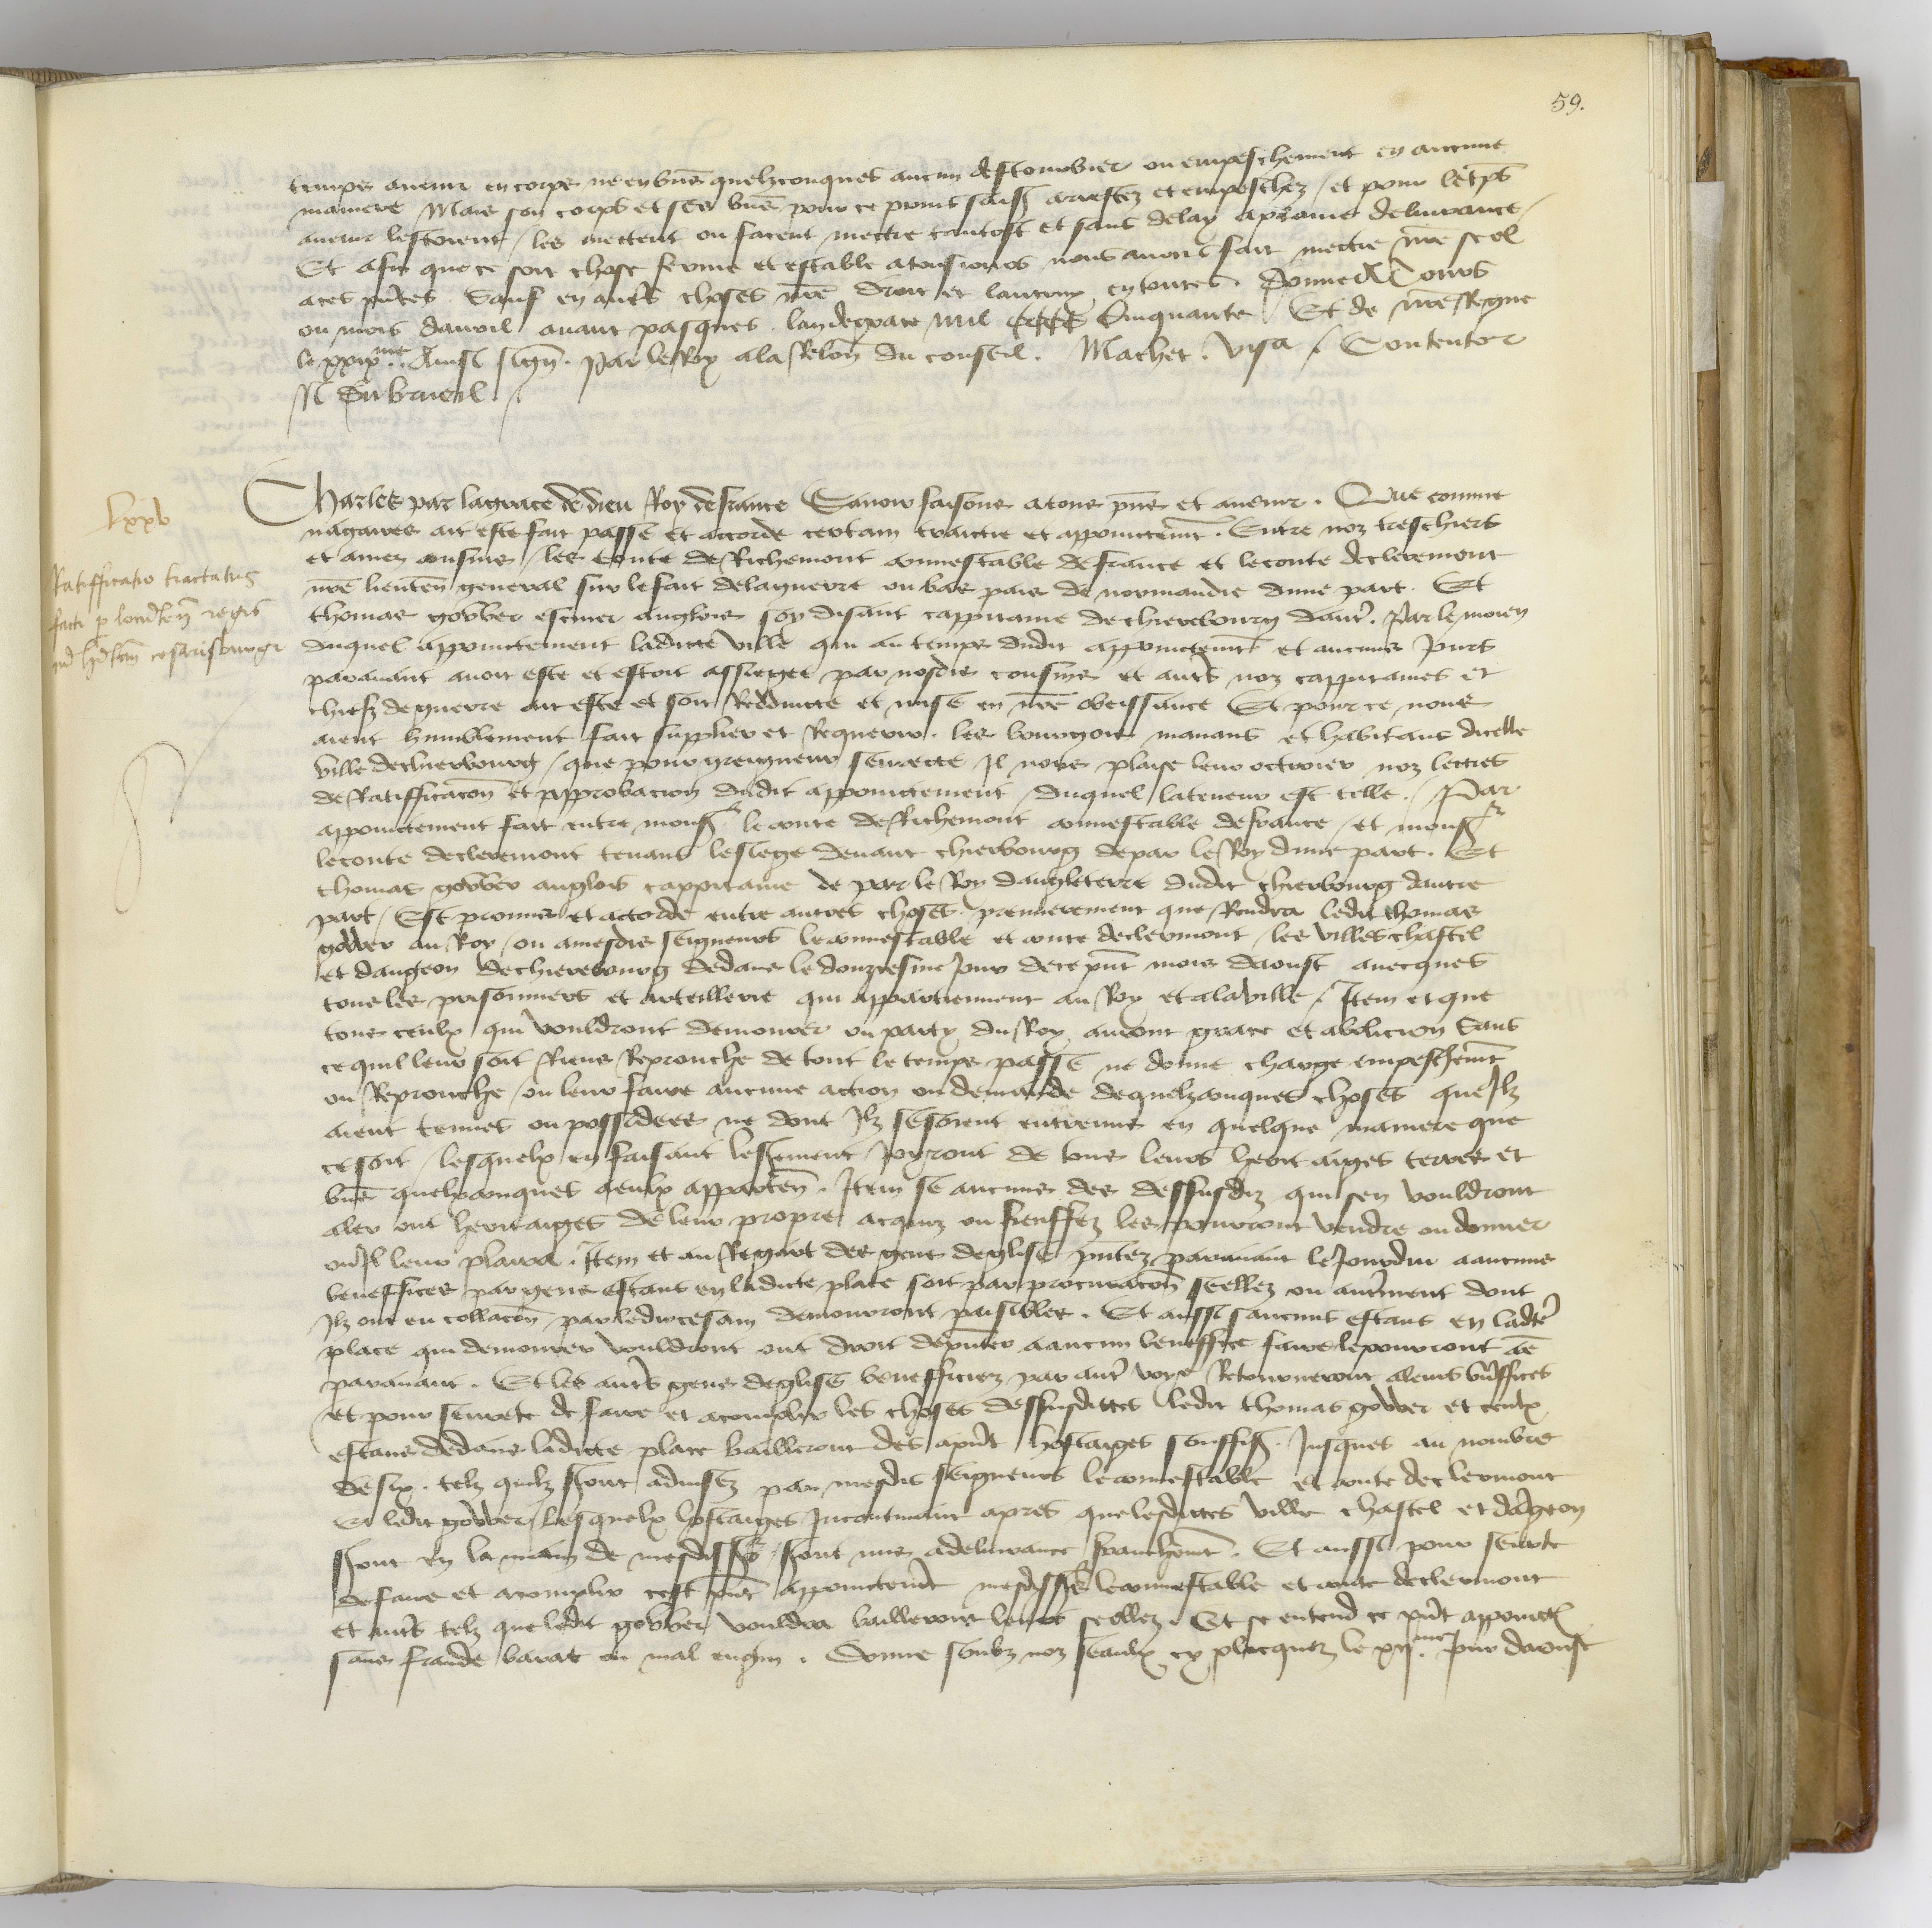 59.
temps avenir en corps ne en biẽs quelzconques aucun destourbier ou empeschement en aucune
maniere Mais son corps et ses biẽs pour ce prins saisiz arrestez et empeschez / et pour le tp̃s
avenir lestoient / les mettent ou facent mectre tantost et sans delay a plaine delivrance /
Et afin que ce soit chose ferme et estable a tousiours nous avons fait mectre nr̃e seel
a ces pñtes . Sauf en autr̃s choses nr̃e droit et lautruy en toutes . Donne a Tours
ou mois davril avant pasques . lan de grace mil cccc Cinquante Et de nr̃e Regne
le xxix me . Ainsi sign̄ . Par le Roy a la Relon̄ du conseil . Machet . Visa / Contentor
N Du brueil /
Lxxv
Ratifficatio tractatus
facti p locũten̄ regis
Charles par la grace de dieu Roy de france Savoir faisons a tous pñs et avenir . Que comme
nagaires ait este fait passé et accordé certain traictie et appoinctemt̃ . Entre noz treschiers
et amez cousins / les conte de Richemont connestable de france et le conte de clermont
nr̃e lieuten̄ general sur le fait de la guerre ou bas pais de normandie dune part . Et
thomas gouver escuier anglois soy disant cappitaine de chierebourg dautr̃ . Par le moien
duquel appoinctement ladicte ville qui au temps dudit appoinctemt̃ et aucuns Jours
paravant avoit este et estoit assiegee par nosdis cousins et autr̃s noz cappitaines et
chiefz de guerre ait este et soit Redduicte et mise en nr̃e obeissance Et pour ce nous
aient humblement fait supplier et Requerir . les bourgois manans et habitans dicelle
ville de chierbourg / que pour greigneur seurecté Il nous plaise leur octroier noz lectres
de Ratifficacōn et approbacion dudit appoinctement / duquel la teneur est telle . / Par
appoinctement fait entre monsr le conte de Richemont connestable de france / et monsr
le conte de clermont tenant le siege devant chierbourg de par le Roy dune part . Et
thomas gouver anglois cappitaine de par le Roy dangleterre dudit chierbourg dautre
part / Est promis et accordé entre autres choses . premierement que Rendra ledit thomas
gouver au Roy / ou a mesdis seigneurs le connestable et conte de clermont / les villes chastel
et dangeon de chierebourg dedans le douziesme jour de ce pñt mois daoust avecques
tous les prisonniers et artillerie qui appartiennent au Roy et a la ville / Item et que
tous ceulx qui vouldront demourer ou party du Roy auront grace et abolicion Sans
ce quil leur soit Riens Reprouche de tout le temps passé ne donne charge empeschemt̃
ou Reprouche / ou leur faire aucune action ou demande de quelzconques choses que Ilz
aient tenues ou possidees ne dont Ilz se soient entremis en quelque maniere que
ce soit / lesquelx en faisant le serement joyront de tous leurs heritaiges terres et
biẽs quelzconques a eulx apparten̄ . Item se aucuns des dessusdiz qui sen vouldront
aler ont heritaiges de leur propre acquiz ou fieuffez les pourront vendre ou donner
ou Il leur plaira . Item et au Regart des gens deglise pñtez paravant le Jourduy a aucuns
beneffices par gens estans en ladicte place soit par procuracōn seellez ou autr̃ment dont
Ilz ont eu collacōn par le diocesain demourront paisibles . Et aussi saucuns estans en ladte
place qui demourer vouldront ont droit de pñter a aucun beneffice faire le pourront cōe
paravant . Et les autr̃s gens deglise benefficiez par autr̃ voye Retourneront a leurs bñffices
et pour seurete de faire et acomplir les choses dessusdittes ledit thomas gouver et ceulx
estans dedans ladicte place bailleront des apñt hostaiges souffis . Jusques au nombre
de six . telz quilz seront advisez par mesdis seigneurs le connestable et conte de clermont
Et ledit gouver / lesquelx hostaiges Incontinant apres que lesdictes ville chastel et dangeon
seront en la main de mesdissrs seront mis a delivrance franchemt̃ . Et aussi pour seurte
de faire et acomplir cest pñt appoinctemt̃ mesdissrs le connestable et conte de clermont
et autr̃s telz que ledit gouver vouldra bailleront leurs seellez . Et se entend ce pñt appoinct
sans fraude barat ou mal engin . Donne soubz noz seaulx cy placquez le xij me jour daoust